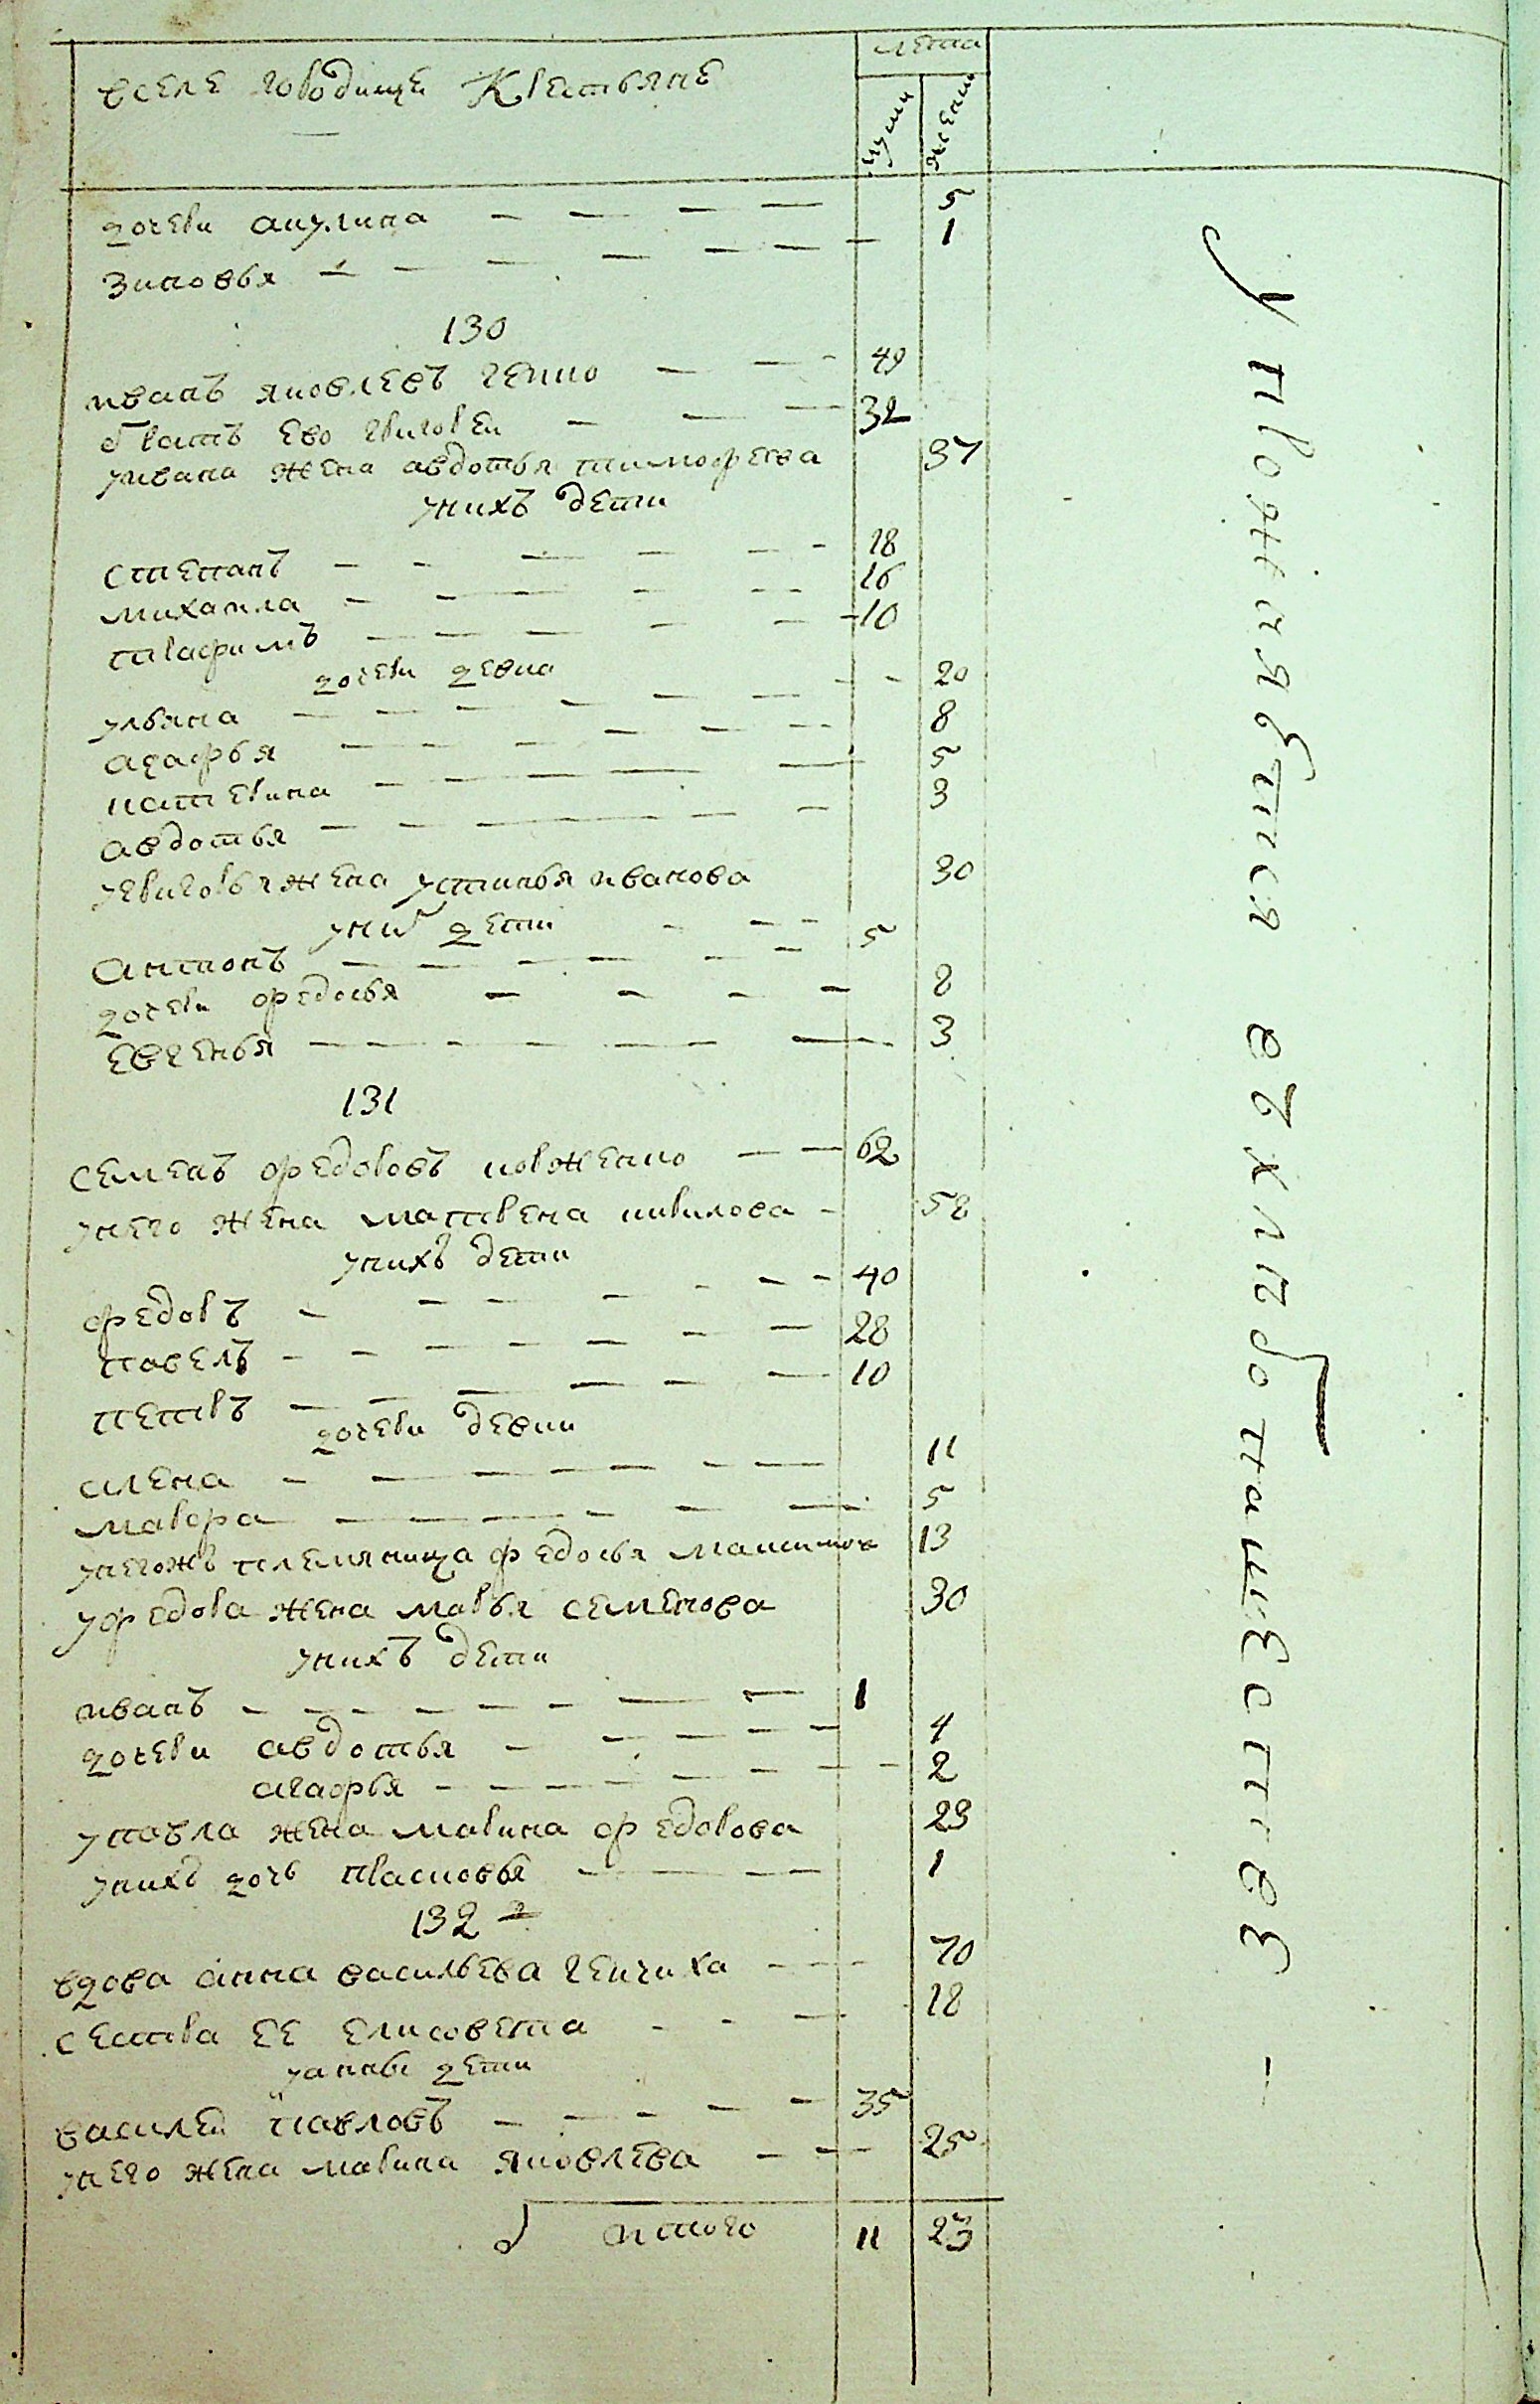 вселе городище Крестьяне
лета
муж жен
дочери акулина — — — — 5
Зиновья — — — — — — 1
130
иванъ яковлевъ генко — — 49
братъ ево григореи — — — 32
уивана жена авдотья тимофеева 37
унихъ дети
степанъ — — — — — 18
михаила — — — — — 16
трафимъ — — — — — 10
дочери девки
ульяна — — — — — 20
агафья — — — — — 8
катерина — — — — — 5
авдотья — — — — — 3
угригорья жена устинья иванова 30
уних дети
антонъ — — — — — 5
дочери федосья — — — — 8
евгенья — — — — — 3
131
семенъ федоровъ корженко — — 62
унего жена матрена кирилова — 58
унихъ дети
федоръ — — — — — 40
павелъ — — — — — 28
петръ — — — — — 10
дочери девки
алена — — — — — 11
мавра — — — — — 5
унегожъ племяница федосья максимова 13
уфедора жена марья семенова 30
унихъ дети
иванъ — — — — — 1
дочери авдотья — — — — 4
агафья — — — — — 2
упавла жена марина федорова 23
унихъ дочь прасковья — — — 1
132
вдова анна васильева генчиха — — 70
сестра ее елисовета — — — 18
уанны дети
василеи павловъ — — — — 35
унего жена марина яковлева — — 25
итого 11 23